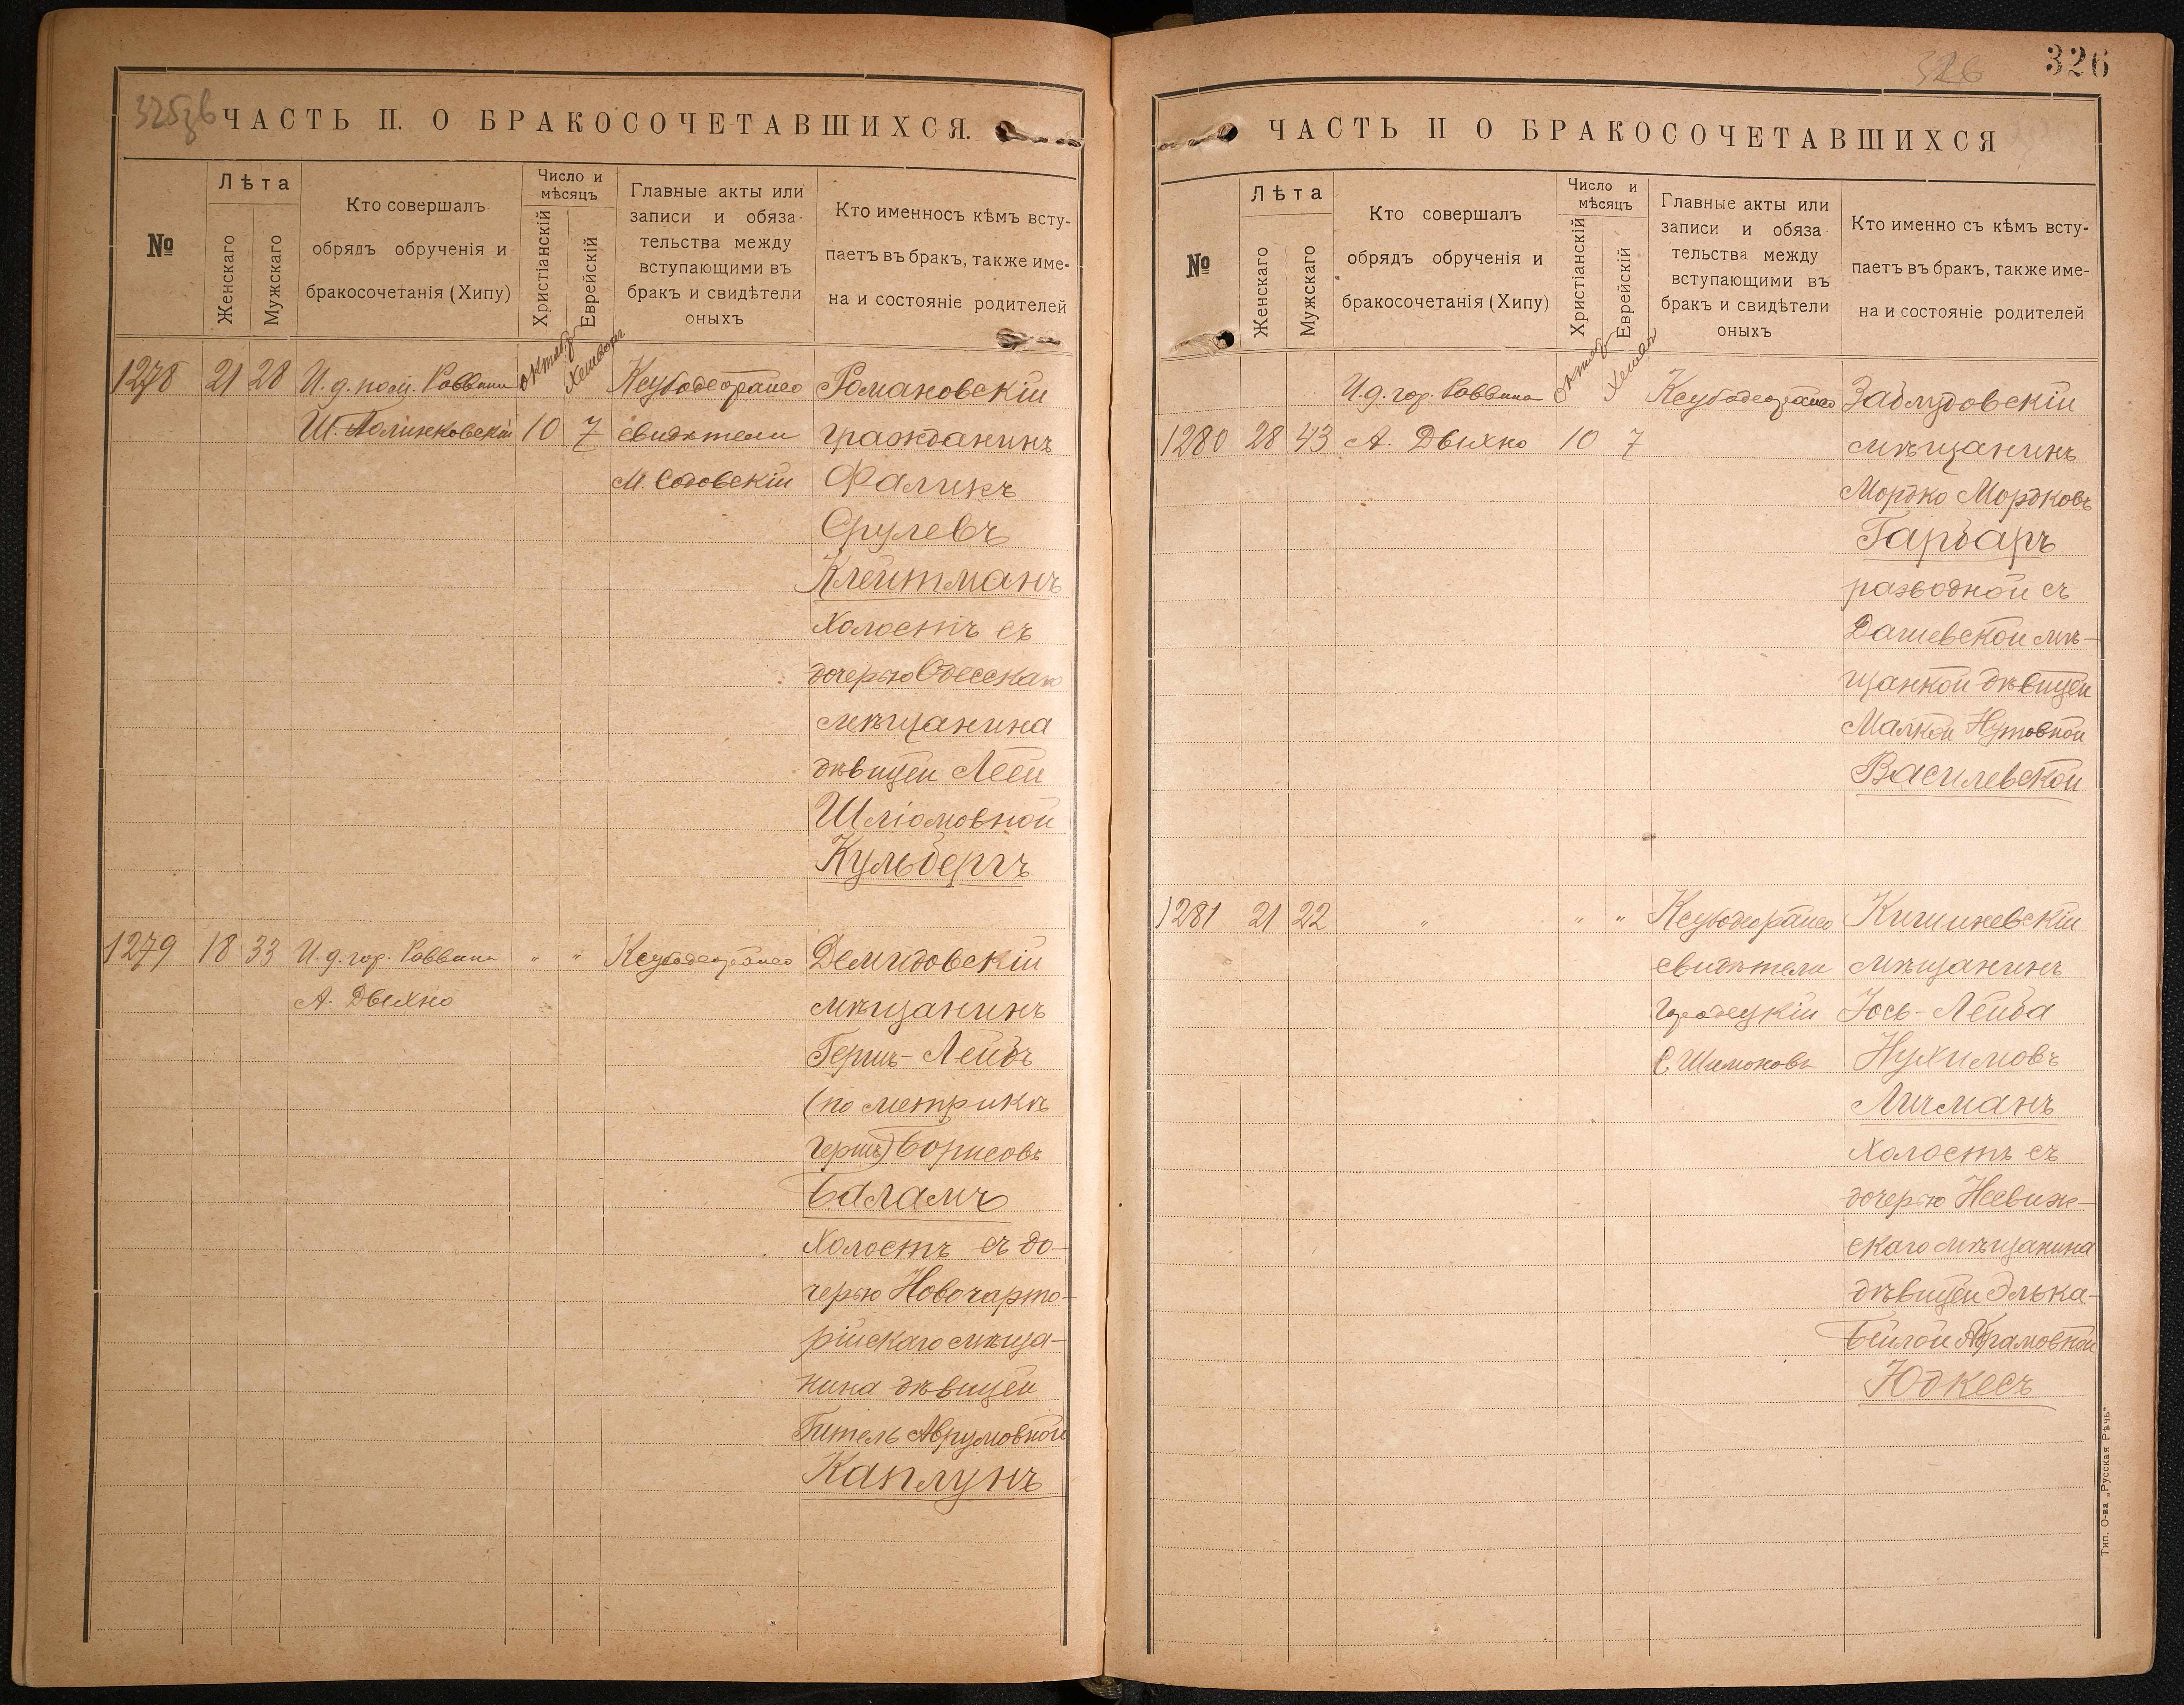 325зв
ЧАСТЬ II. О БРАКОСОЧЕТАВШИХСЯ.
№
Лѣта
Женскаго
Мужскаго
Кто совершалъ
обрядъ обрученія и
бракосочетанія (Хипу)
Число и
мѣсяцъ
Христіанскій
Еврейскій
Главные акты или
записи и обяза-
тельства между
вступающими въ
бракъ и свидѣтели
оныхъ
Кто именносъ кѣмъ всту-
паетъ въ бракъ, также име-
на и состояніе родителей
1278 21 28 И. д. Раввина
октяб
Романовскій
10 7 свидѣтели гражданинъ
М. Содовскій Фаликъ
Срулевъ
Клейтманъ
холостъ съ
дочерью Одесскаго
мѣщанина
дѣвицей Леей
Шліомовной
Кульбергъ
1279 18 33 И. д. гор. Раввина " " Демидовскій
А. Двихно мѣщанинъ
Гершъ-Лейбъ
(по метрикѣ
Гершъ) Борисовъ
Баламъ
холостъ съ до-
черью Новочарто-
рійскаго мѣща-
нина дѣвицей
Гитель Аврумовной
Каплунъ
326
326
ЧАСТЬ II О БРАКОСОЧЕТАВШИХСЯ
№
Лѣта
Женскаго
Мужскаго
Кто совершалъ
обрядъ обрученія и
бракосочетанія (Хипу)
Число и
мѣсяцъ
Христіанскій
Еврейскій
Главные акты или
записи и обяза
тельства между
вступающими въ
бракъ и свидѣтели
оныхъ
Кто именно съ кѣмъ всту-
паетъ въ бракъ, также име-
на и состояніе родителей
И. д. гор. Раввина
октяб
Заблудовскій
1280 28 43 А. Двихно 10 7 мѣщанинъ
Мордко Мордковъ
Гарбаръ
разводной съ
Дашевской мѣ-
щанкой дѣвицей
Малкой Нутовной
Василевской
1281 21 22 " " " Кишиневскій
свидѣтели мѣщанинъ
Городецкій Іось-Лейба
С Шимоновъ Нухимовъ
Личманъ
холостъ съ
дочерью Несвиж-
скаго мѣщанина
дѣвицей Элька-
Бейлой Абрамовной
Юдкесъ
Тип. О-ва „Русская Рѣчь"